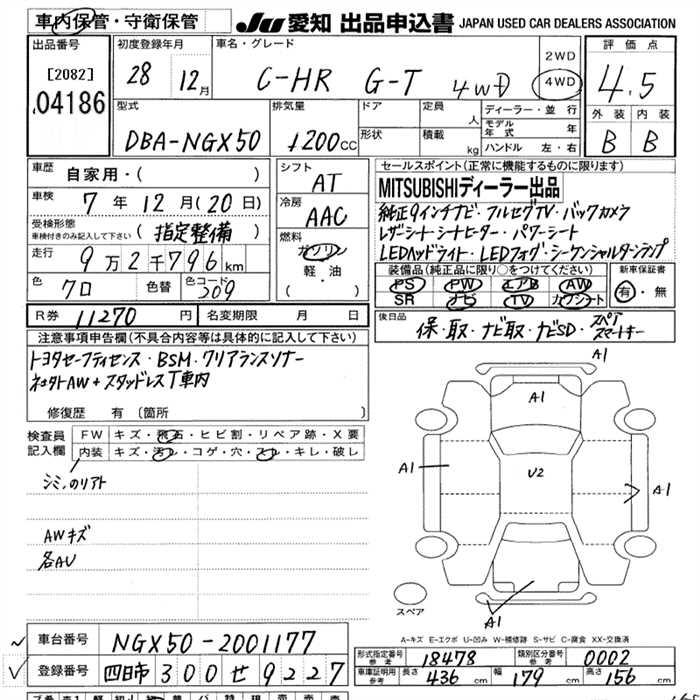 車内保管・守衛保管
JU 愛知 出品申込書 JAPAN USED CAR DEALERS ASSOCIATION
出品番号
[2082]
04186
初度登録年月
28 12月
車名・グレード
C-HR G-T 4WD
2WD
4WD
評価点
4.5
外装 内装
B B
型式
DBA-NGX50
排気量
1200cc
ドア
形状
定員 人
積載 kg
ディーラー・並行
モデル年式 年
ハンドル 左・右
車歴 自家用・( )
車検 7年12月(20日)
受検形態
車検付きのみ記入して下さい (指定整備)
走行 9万2千796km
色 クロ 色替 色コード 209
シフト AT
冷房 AAC
燃料
ガソリン
軽・油
( )
セールスポイント(正常に機能するものに限ります)
MITSUBISHIディーラー出品
純正9インチナビ・フルセグTV・バックカメラ
レザーシート・シートヒーター・パワーシート
LEDヘッドライト・LEDフォグ・シーケンシャルターンランプ
装備品(純正品に限り○をつけてください)
PS PW エアB AW
SR ナビ TV カワシート
新車保証書
有・無
R券 11270円 名変期限 月 日
後日品
保・取・ナビ取・ナビSD・スペアスマートキー
注意事項申告欄(不具合内容等は具体的に記入して下さい)
トヨタセーフティセンス・BSM・クリアランスソナー
ネオトAW+スタッドレスT車内
修復歴 有(箇所
検査員記入欄
FW キズ・飛石・ヒビ割・リペア跡・X要
内装 キズ・汚レ・コゲ・穴・スレ・キレ・破レ
シミ、のリアト
AWキズ
各AU
A1
A1
A1
U2
A1
A1
スペア
A-キズ E-エクボ U-凹み W-補修跡 S-サビ C-腐食 XX-交換済
車台番号 NGX50-2001177
登録番号 四日市 300 せ 9227
形式指定番号 参考 18478 類別区分番号 参考 0002
車両証明用 参考 長さ 436cm 幅 179cm 高さ 156cm